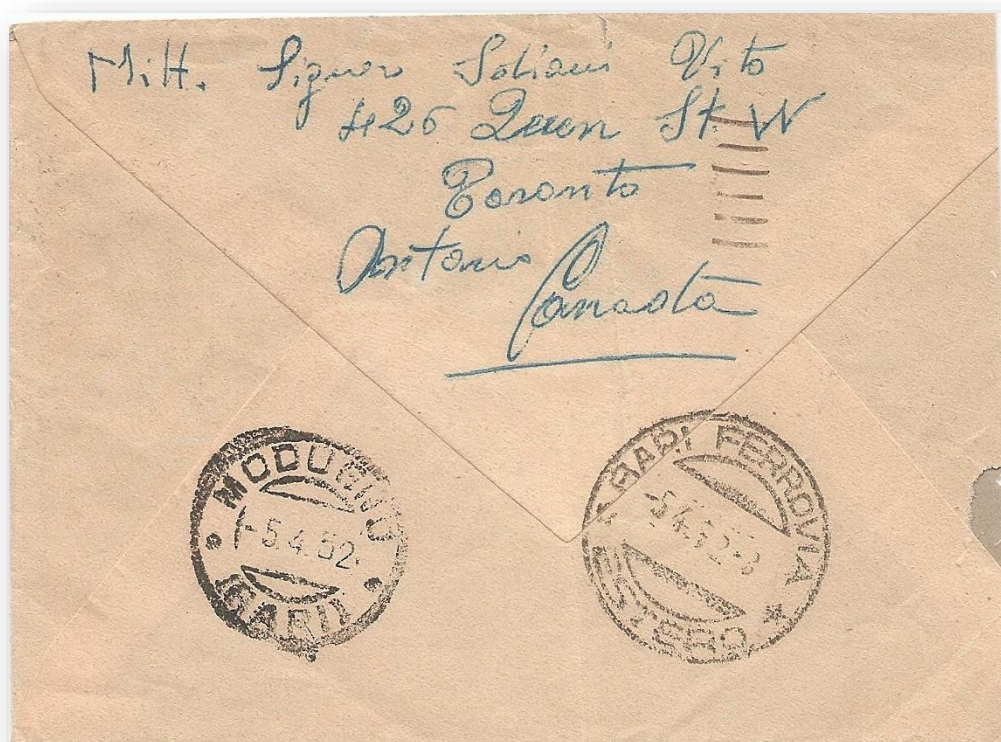 Mitt. Signor Soliani Vito
426 Queen St. W
Toronto
Ontario
Canada
MODUGNO
-5.4.52
(BARI)
BARI FERROVIA
-5.4.52-8
ESTERO